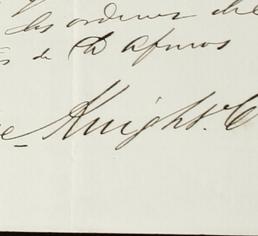 las ordenes de
s de D Afmos
e Knight. C